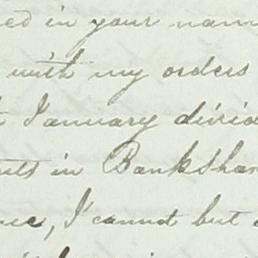 ed in your nam
with my orders
January divid
nts in Bank Shar
nce, I cannot but